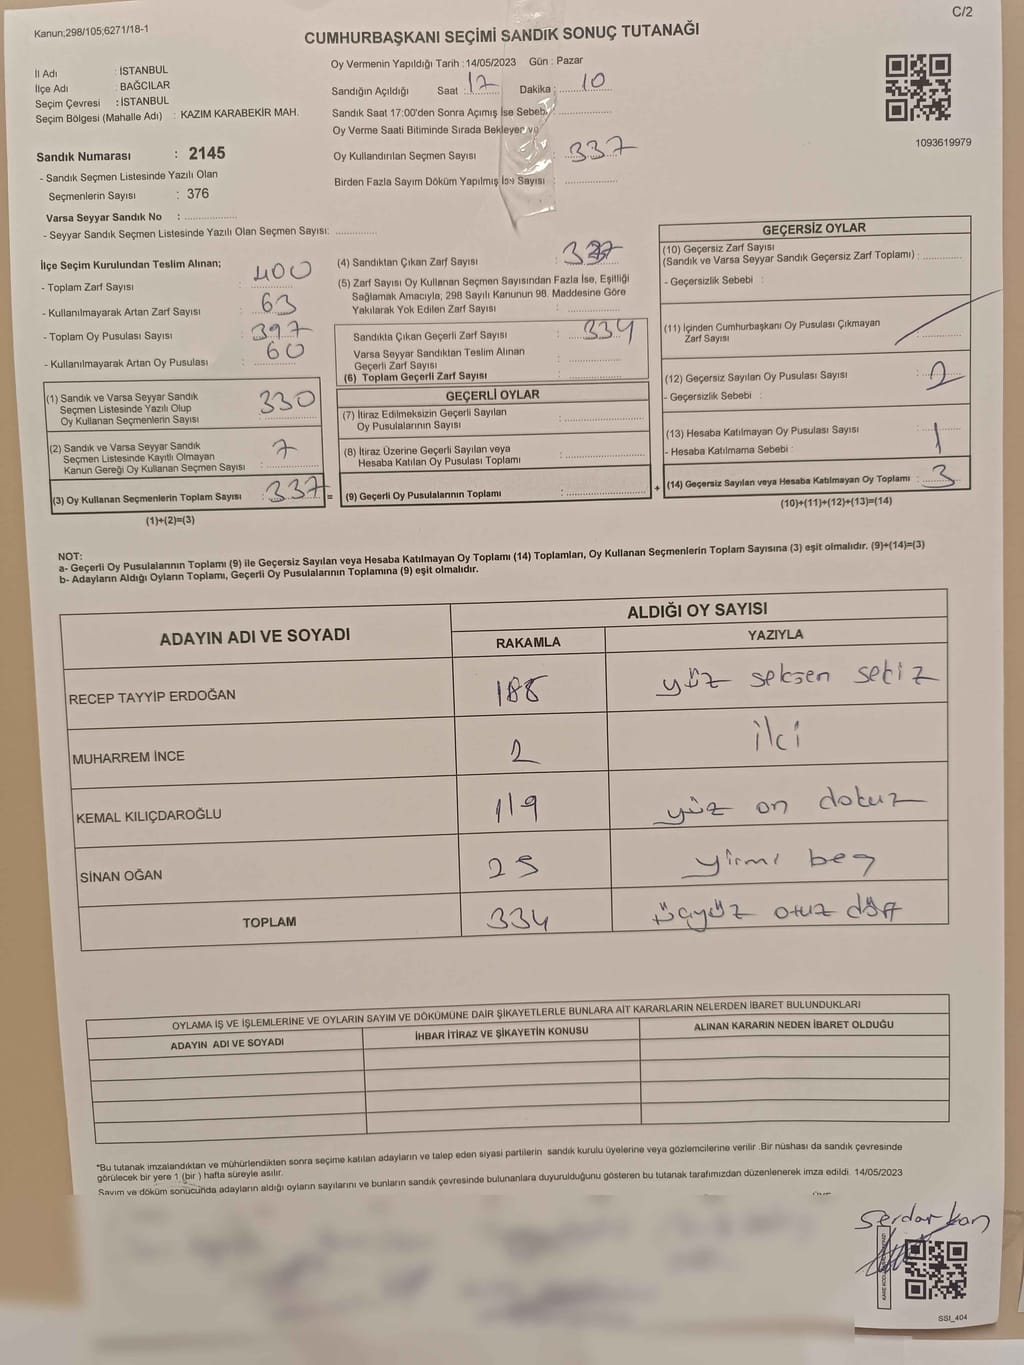 C/2
Kanun;298/105;6271/18-1
CUMHURBAŞKANI SEÇİMİ SANDIK SONUÇ TUTANAĞI
İl Adı : İSTANBUL
İlçe Adı : BAĞCILAR
Seçim Çevresi : İSTANBUL
Seçim Bölgesi (Mahalle Adı) : KAZIM KARABEKİR MAH.
Sandık Numarası : 2145
- Sandık Seçmen Listesinde Yazılı Olan
Seçmenlerin Sayısı : 376
Varsa Seyyar Sandık No : ................
- Seyyar Sandık Seçmen Listesinde Yazılı Olan Seçmen Sayısı: ............
Oy Vermenin Yapıldığı Tarih :14/05/2023 Gün : Pazar
Sandığın Açıldığı Saat : 17 Dakika : 10
Sandık Saat 17:00'den Sonra Açımış İse Sebebi
Oy Verme Saati Bitiminde Sırada Bekleyen ve
Oy Kullandırılan Seçmen Sayısı : 337
Birden Fazla Sayım Döküm Yapılmış İse Sayısı :
1093619979
İlçe Seçim Kurulundan Teslim Alınan;
- Toplam Zarf Sayısı : 400
- Kullanılmayarak Artan Zarf Sayısı : 63
- Toplam Oy Pusulası Sayısı : 397
- Kullanılmayarak Artan Oy Pusulası : 60
(1) Sandık ve Varsa Seyyar Sandık
Seçmen Listesinde Yazılı Olup
Oy Kullanan Seçmenlerin Sayısı : 330
(2) Sandık ve Varsa Seyyar Sandık
Seçmen Listesinde Kayıtlı Olmayan
Kanun Gereği Oy Kullanan Seçmen Sayısı : 7
(3) Oy Kullanan Seçmenlerin Toplam Sayısı : 337 =
(1)+(2)=(3)
(4) Sandıktan Çıkan Zarf Sayısı : 337
(5) Zarf Sayısı Oy Kullanan Seçmen Sayısından Fazla İse, Eşitliği
Sağlamak Amacıyla; 298 Sayılı Kanunun 98. Maddesine Göre
Yakılarak Yok Edilen Zarf Sayısı :
Sandıkta Çıkan Geçerli Zarf Sayısı : 334
Varsa Seyyar Sandıktan Teslim Alınan
Geçerli Zarf Sayısı :
(6) Toplam Geçerli Zarf Sayısı :
GEÇERLİ OYLAR
(7) İtiraz Edilmeksizin Geçerli Sayılan
Oy Pusulalarının Sayısı :
(8) İtiraz Üzerine Geçerli Sayılan veya
Hesaba Katılan Oy Pusulası Toplamı :
(9) Geçerli Oy Pusulalarının Toplamı : +
GEÇERSİZ OYLAR
(10) Geçersiz Zarf Sayısı
(Sandık ve Varsa Seyyar Sandık Geçersiz Zarf Toplamı) :
- Geçersizlik Sebebi :
(11) İçinden Cumhurbaşkanı Oy Pusulası Çıkmayan
Zarf Sayısı
(12) Geçersiz Sayılan Oy Pusulası Sayısı : 2
- Geçersizlik Sebebi :
(13) Hesaba Katılmayan Oy Pusulası Sayısı : 1
- Hesaba Katılmama Sebebi :
(14) Geçersiz Sayılan veya Hesaba Katılmayan Oy Toplamı : 3
(10)+(11)+(12)+(13)=(14)
NOT:
a- Geçerli Oy Pusulalarının Toplamı (9) ile Geçersiz Sayılan veya Hesaba Katılmayan Oy Toplamı (14) Toplamları, Oy Kullanan Seçmenlerin Toplam Sayısına (3) eşit olmalıdır. (9)+(14)=(3)
b- Adayların Aldığı Oyların Toplamı, Geçerli Oy Pusulalarının Toplamına (9) eşit olmalıdır.
ADAYIN ADI VE SOYADI ALDIĞI OY SAYISI
RAKAMLA YAZIYLA
RECEP TAYYİP ERDOĞAN 188 yüz seksen sekiz
MUHARREM İNCE 2 iki
KEMAL KILIÇDAROĞLU 119 yüz on dokuz
SİNAN OĞAN 25 yirmi beş
TOPLAM 334 üçyüz otuz dört
OYLAMA İŞ VE İŞLEMLERİNE VE OYLARIN SAYIM VE DÖKÜMÜNE DAİR ŞİKAYETLERLE BUNLARA AİT KARARLARIN NELERDEN İBARET BULUNDUKLARI
ADAYIN ADI VE SOYADI İHBAR İTİRAZ VE ŞİKAYETİN KONUSU ALINAN KARARIN NEDEN İBARET OLDUĞU
*Bu tutanak imzalandıktan ve mühürlendikten sonra seçime katılan adayların ve talep eden siyasi partilerin sandık kurulu üyelerine veya gözlemcilerine verilir .Bir nüshası da sandık çevresinde
görülecek bir yere 1 (bir ) hafta süreyle asılır.
Sayım ve döküm sonucunda adayların aldığı oyların sayılarını ve bunların sandık çevresinde bulunanlara duyurulduğunu gösteren bu tutanak tarafımızdan düzenlenerek imza edildi. 14/05/2023
Serdar kan
SSI_404